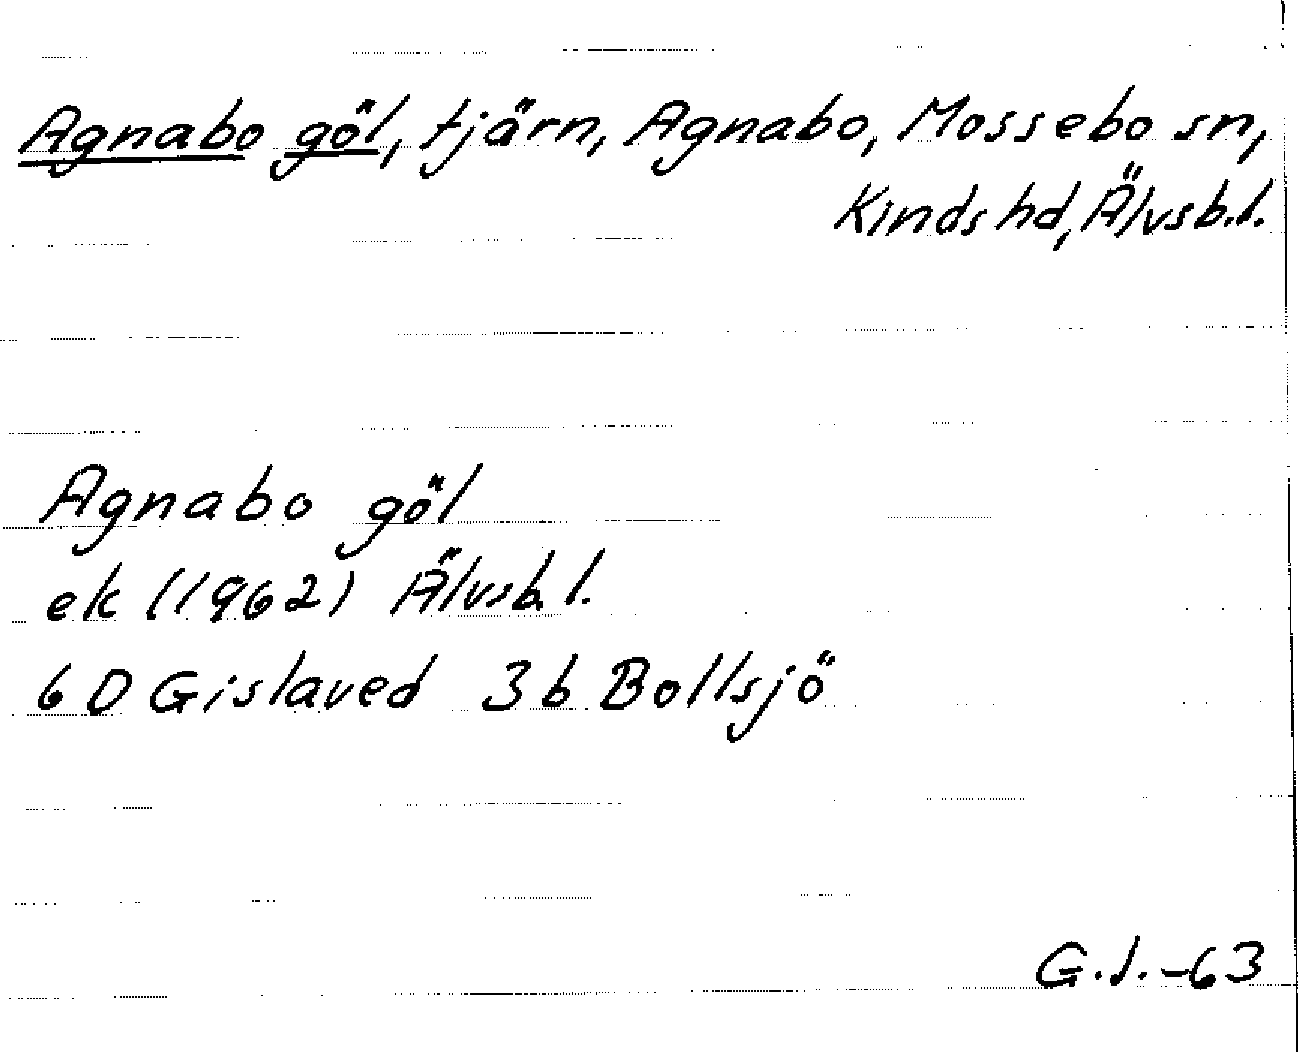 Agnabo göl, tjärn, Agnabo, Mossebo sn,
Kinds hd, Älvsb.l.
Agnabo göl
ek (1962) Älvsb.l.
6 D Gislaved 3b Bollsjö
G.J.-63